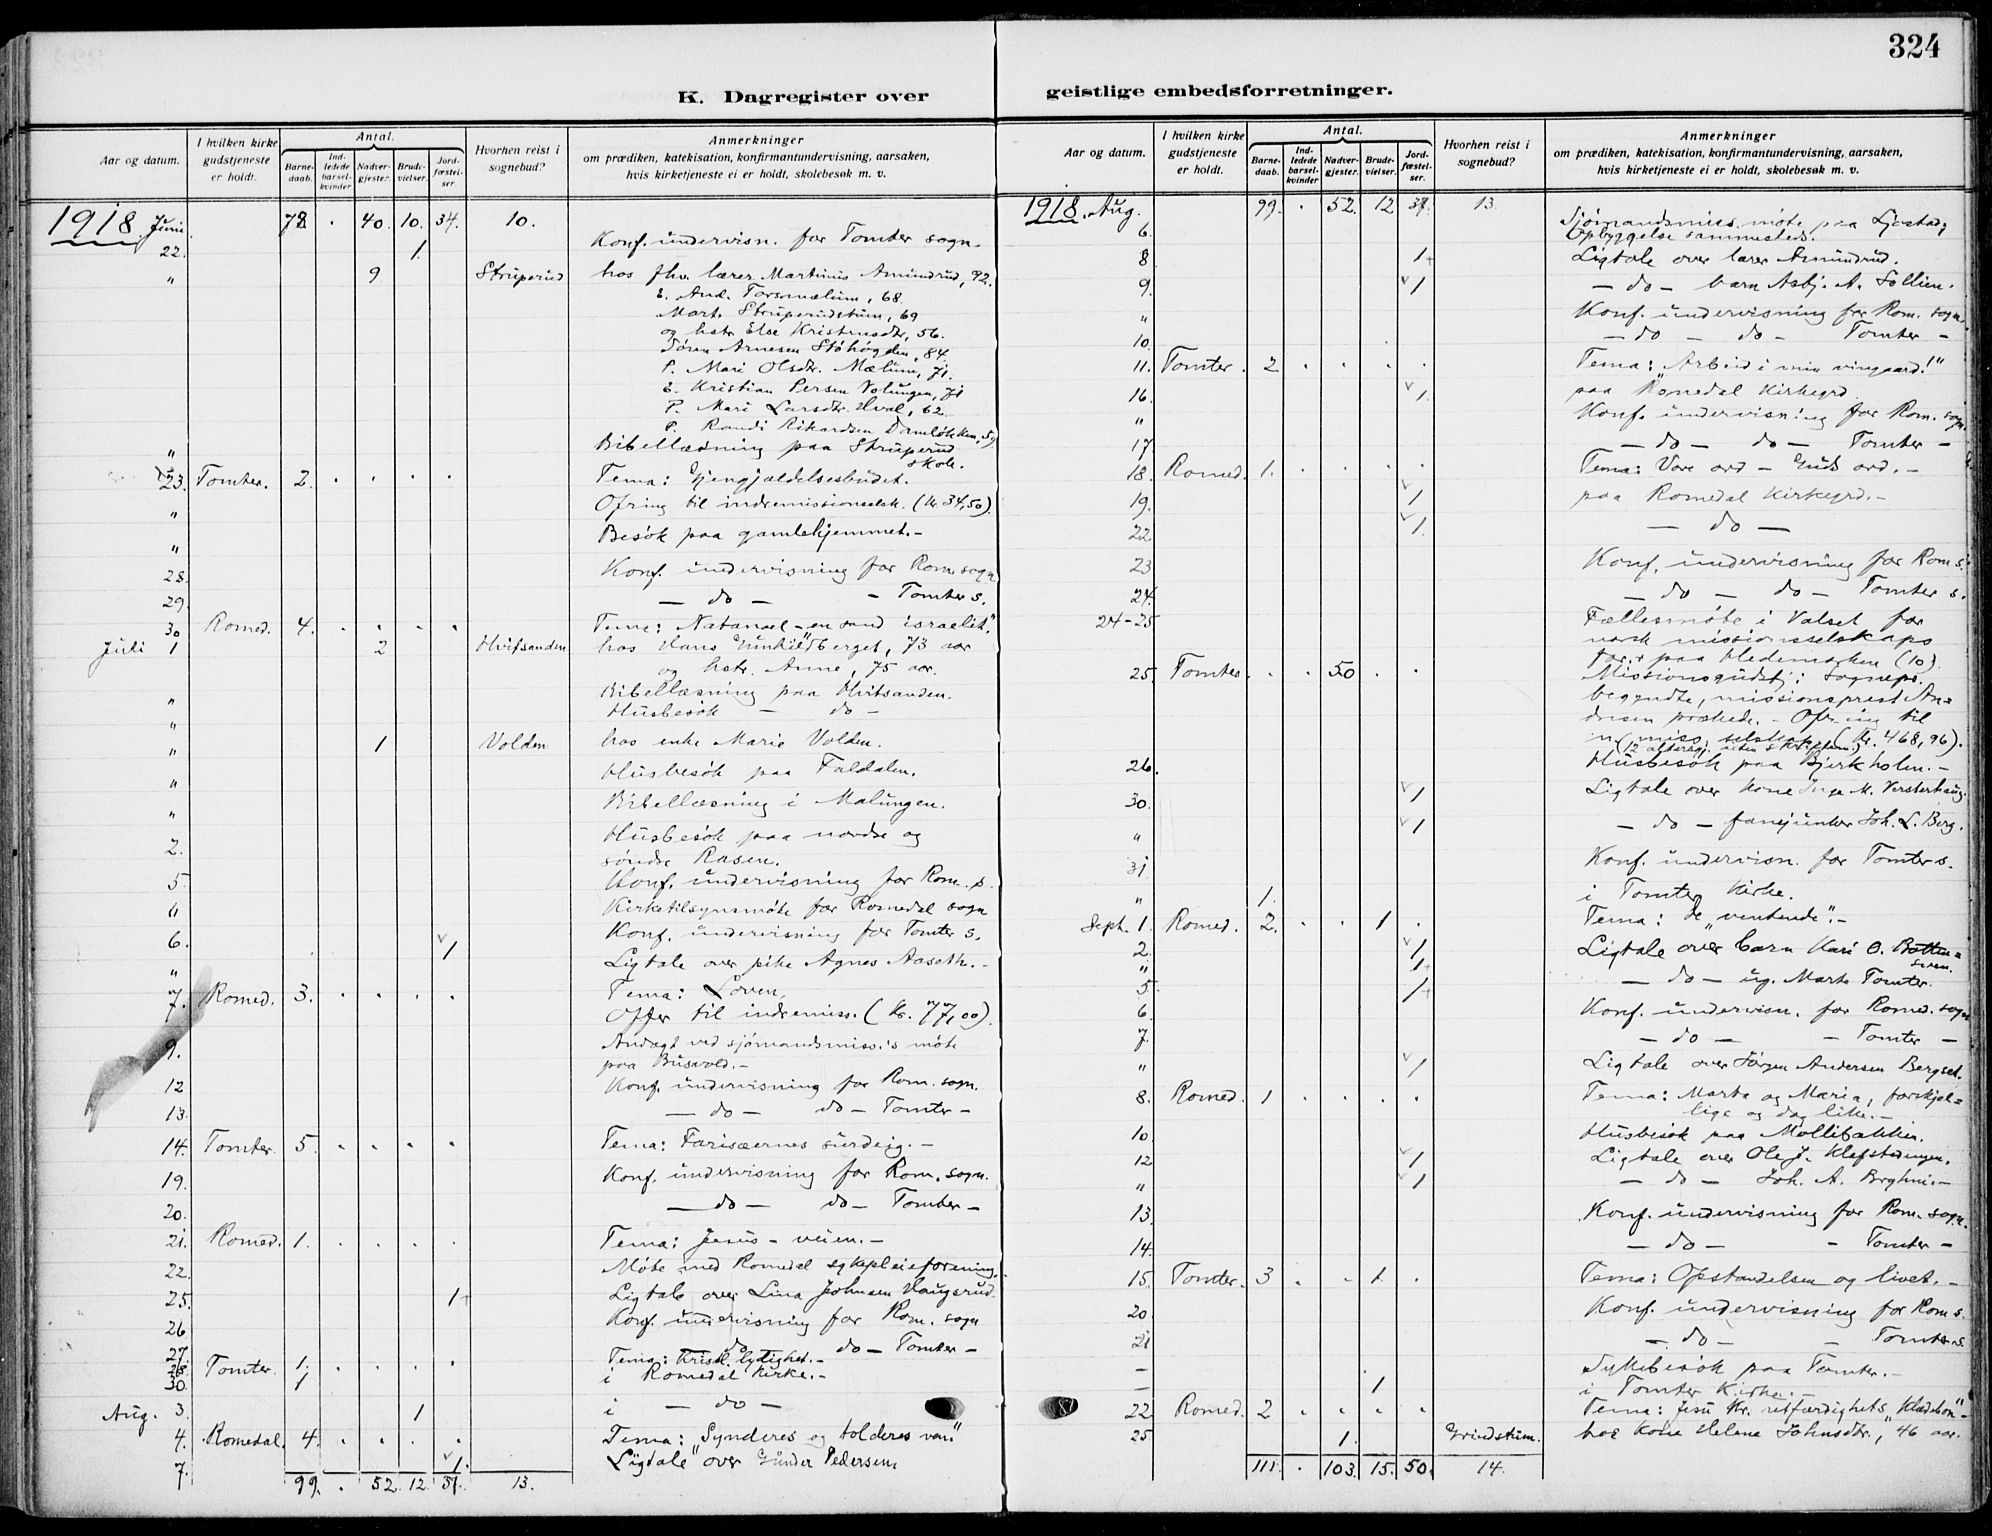 324
K. Dagregister over geistlige embedsforretninger.
Aar og datum.
I hvilken kirke gudstjeneste er holdt.
Antal.
Barnedaab.
Indledede barselkvinder
Nadvergjester.
Brudevielser.
Jordfæstelser.
Hvorhen reist i sognebud?
Anmerkninger
om prædiken, katekisation, konfirmantundervisning, aarsaken,
hvis kirketjeneste ei er holdt, skolebesøk m. v.
1918. Juni. 78 . 40. 10. 34. 10.
22. 1. Konf. undervisn. for Tomter sogn.
" 9 Struperud hos fhv. lærer Martinus Amundrud, 92.
E. And. Torsmælum, 68.
Mart. Struperudstum, 69
og hstr. Else Kristensdtr, 56.
Sören Arnesen Stöhögden, 84.
P. Mari Olsdtr. Mælum, 71.
E. Kristian Persen Volungen, 71
P. Mari Larsdtr. Hval, 62.
P. Randi Rikardsen
" Bibellæsning paa Struperud
skole.
23. Tomter. 2. . . . . Tema: Gjengjældelsesbudet.
" Ofring til indremissionselsk. (Kr. 34,50).
" Besök paa gamlehjemmet.-
28. Konf. undervisning for Rom. sogn
29. - do - - Tomter s.
30 Romed. 4. . . . . Tema: Natanael - en sand israelit."
Juli 1 2 Hvitsanden hos Hans Gunhildberget, 73 aar
og hstr. Anne, 75 aar.
" Bibellæsning paa Hvitsanden.
" Husbesök - do -
" 1 Volden hos enke Marie Volden.
" Husbesök paa Faldalen.
" Bibellæsning i Malungen.
2. Husbesök paa nordre og
söndre Rasen.
5. Konf. undervisning for Rom. s.
" Kirketilsynsmöte for Romedal sogn
6. Konf. undervisning for Tomter s.
" 1 Ligtale over pike Agnes Aaseth.-
7. Romed. 3. . . . . Tema: Loven.
Offer til indremiss. (kr. 77,00).
9. Andagt ved sjömandsmiss.s möte
paa Busvold.-
12 Konf. undervisning for Rom. sogn.
13. - do - do - Tomter -
14. Tomter. 5. . . . . Tema: Farisæernes surdeig.-
19. Konf. undervisning for Rom. sogn.
20. - do - do - Tomter -
21. Romed. 1. . . . . Tema: Jesus - veien.-
22. Möte med Romedal sykepleieforening.
25. 1+ Ligtale over Lina Johnsen Haugsrud.
26 Konf. undervisning for Rom. sogn
27. do do - Tomter -
28. Tomter. 1. . . . . Tema: Kristl. lydighet.-
30. 1 i Romedal Kirke.-
Aug. 3. 1 i - do -
4. Romedal. 4. . . . . Tema: "Synderes og tolderes ven."
7. 1. Ligtale over Gunder Pedersen.
99. . 52. 12. 37. 13.
Aar og datum.
I hvilken kirke gudstjeneste er holdt.
Antal.
Barnedaab.
Indledede barselkvinder
Nadvergjester.
Brudevielser.
Jordfæstelser.
Hvorhen reist i sognebud?
Anmerkninger
om prædiken, katekisation, konfirmantundervisning, aarsaken,
hvis kirketjeneste ei er holdt, skolebesøk m. v.
1918. Aug. 99. . 52. 12 37. 13.
6. Sjömandsmiss. möte paa
Opbyggelse sammesteds.
8 1+ Ligtale over lærer Amundrud.
9. 1 - do - barn Asbj. A. Sollien.
" Konf. undervisning for Rom. sogn.
10. - do - do - Tomter -
11. Tomter. 2 . . . . Tema: "Arbeid i min vingaard!"
16. 1. paa Romedal Kirkegrd
" Konf. undervisning for Rom. sogn.
17. - do - do - Tomter -
18. Romed. 1. . . . . Tema: Vore ord - Guds ord.-
19. 1 paa Romedal Kirkegrd.-
22 1. - do -
23 Konf. undervisning for Rom s.
24. - do - do - Tomter s.
24-25 Fællesmöte i Valset for
norsk missionsselskaps
for.r paa Hedemarken (10).
25. Tomter. . . 50 . . Missionsgudstj: sognepr.
begyndte, missionsprest An=
dresen prækede. - Ofring til
n. miss. selskap (Kr. 468,96).
26. Husbesök paa Bjerkholen.-
30. 1 Ligtale over kone Inga M. Versterhaug.
" 1 - do - fanejunker Joh. L. Berg.
31 Konf. undervisn. for Tomter s.
" 1. i Tomter Kirke.
Sept. 1. Romed. 2. . . 1 . Tema: De "ventende".-
2. 1 Ligtale over barn Kari O. Botten=
" 1+ - do - ug. Marte Tomter.
5. 1+
6. Konf. undervisn. for Romed. sogn
7. - do - - Tomter -
" 1 Ligtale over Jörgen Andersen Bergset.
8. Romed. 1 . . . . Tema: Marta og Maria, forskjel=
lige og dog like.-
10. Husbesök paa Mollibakken.
12 1 Ligtale over Ole J. Klefstadengen.
" 1 - do - Joh. A.
13. Konf. undervisning for Rom. sogn.
14. - do - - Tomter -
15. Tomter. 3 . . 1. . Tema: Opstandelsen og livet.-
20. Konf. undervisning for Rom s.
21 - do - - Tomter s.
- Sykebesök paa Tomter.-
- 1 i Tomter Kirke.-
22. Romed. 2 . . . . Tema: Jesu Kr. retfærdighets "Klædebon"-
25 1. Grindstum. hos kone Helene Johnsdtr., 46 aar.
111. . 103. 15. 50. 14.